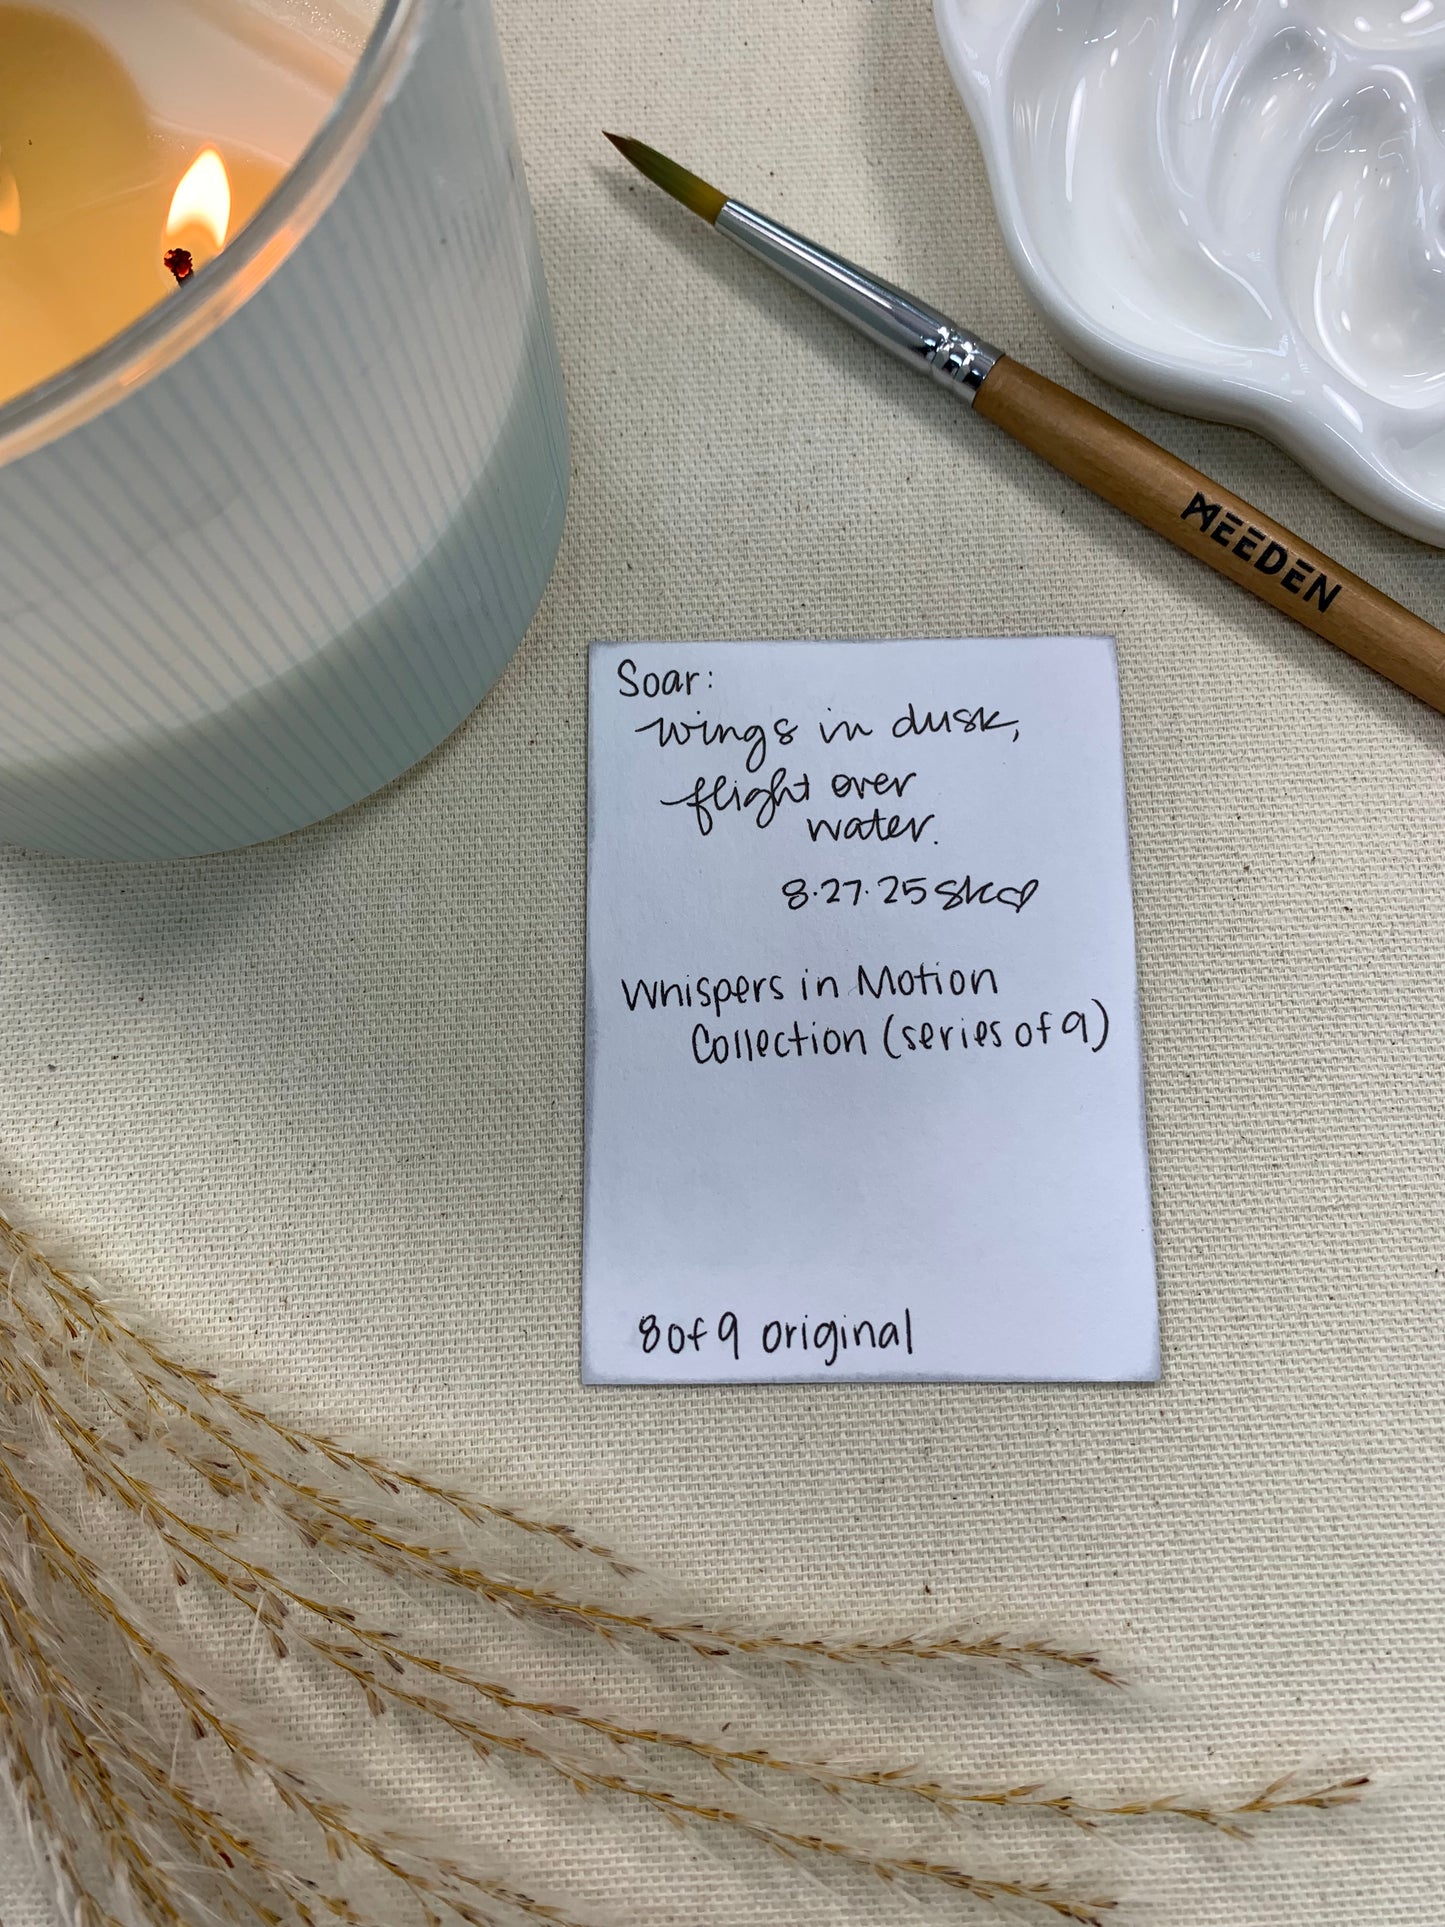 MEEDEN
Soar:
wings in dusk,
flight over
water.
8.27.25 SK♡
Whispers in Motion
Collection (series of 9)
8 of 9 original